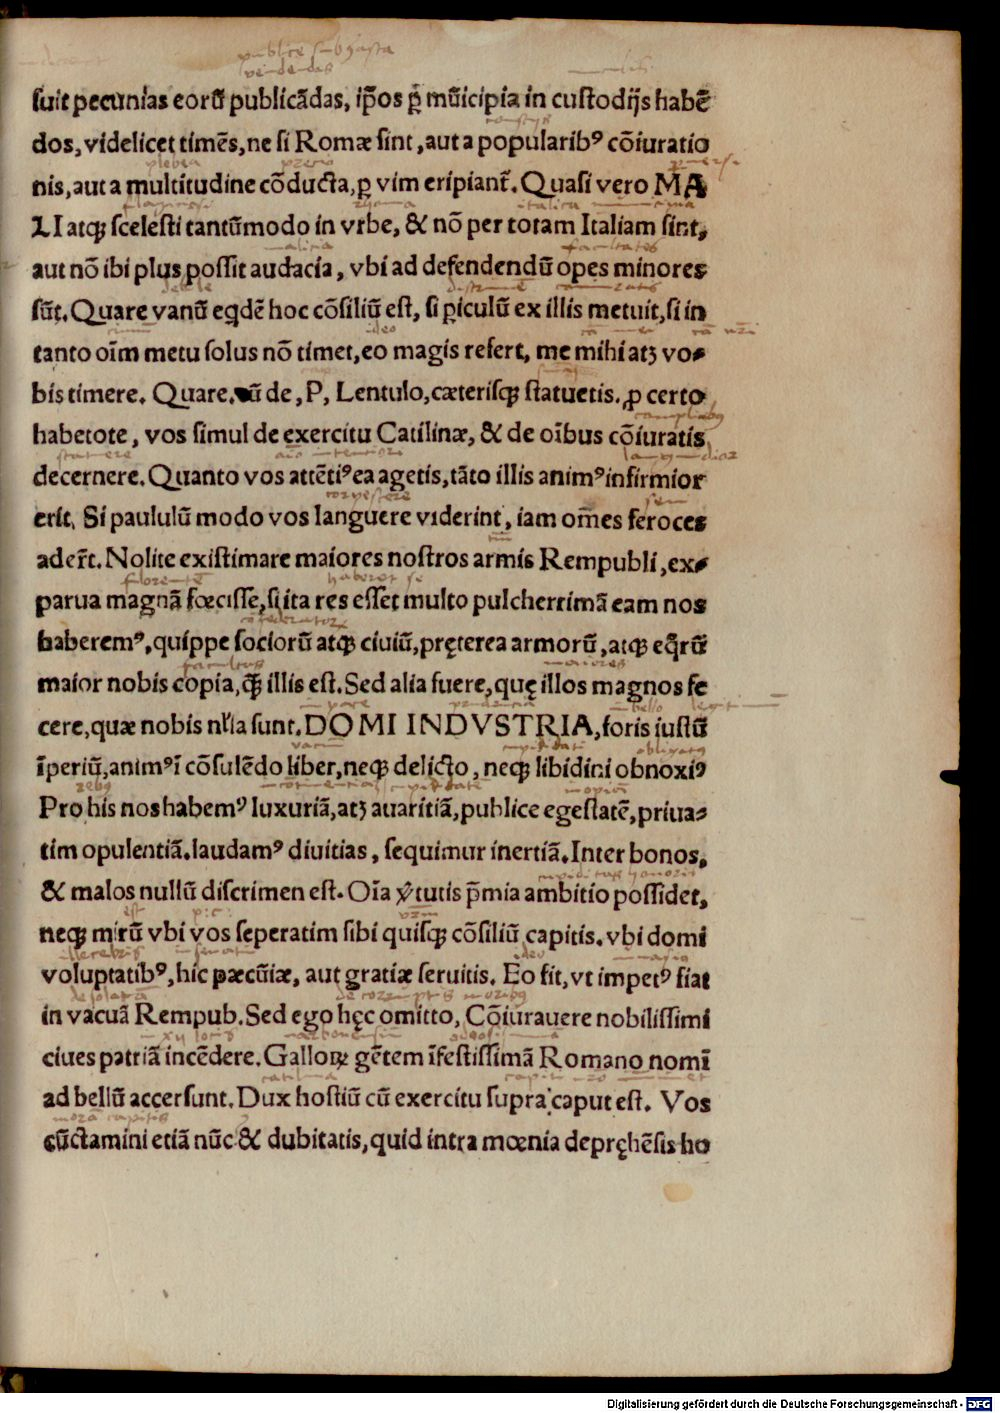 publice sub hasta
vendendas
suit pecunias eorũ publicãdas, ip̃os ꝑ mũicipia in custodijs habẽ
dos, videlicet timẽs, ne si Romæ sint, aut a popularibꝰ cõiuratio
plebea precio
nis, aut a multitudine cõducta, ꝑ vim eripiant̃. Quasi vero MA
LI atqꝫ scelesti tantũmodo in vrbe, & nõ per totam Italiam sint,
malicia facultates
aut nõ ibi plus possit audacia, vbi ad defendendũ opes minores
debile
sũt. Quare vanũ eqdẽ hoc cõsiliũ est, si ꝑiculũ ex illis metuit, si in
ideo
tanto oĩm metu solus nõ timet, eo magis refert, me mihi atꝫ vo-
bis timere. Quare. cũ de, P, Lentulo, cæterisqꝫ statuetis. ꝓ certo
habetote, vos simul de exercitu Catilinæ, & de oĩbus cõiuratis
statuere
decernere. Quanto vos attẽtiꝰ ea agetis, tãto illis animꝰ infirmior
erit. Si paululũ modo vos languere viderint, iam om̃es feroces
ader̃t. Nolite existimare maiores nostros armis Rempubli, ex-
florentẽ haberet se
parua magnã fœcisse, si ita res esset multo pulcherrimã eam nos
haberemꝰ, quippe sociorũ atqꝫ ciuiũ, pręterea armorũ, atqꝫ eq̃rũ
facultas maiores
maior nobis copia, q̃ꝫ illis est. Sed alia fuere, quę illos magnos fe
in pace prudencia in bello
cere, quæ nobis nłla sunt. DOMI INDVSTRIA, foris iustũ
obligatꝰ
ĩperiũ, animꝰ ĩ cõsulẽdo liber, neqꝫ delicto, neqꝫ libidini obnoxiꝰ
rebꝰ
Pro his nos habemꝰ luxuriã, atꝫ auaritiã, publice egestatẽ, priua-
tim opulentiã. laudamꝰ diuitias, sequimur inertiã. Inter bonos,
cupiditas honoris
& malos nullũ discrimen est. Oĩa ṽtutis p̃mia ambitio possidet,
est p: c:
neqꝫ mirũ vbi vos seperatim sibi quisqꝫ cõsiliũ capitis. vbi domi
in senatu ideo
voluptatibꝰ, hic pæcũiæ, aut gratiæ seruitis. Eo fit, vt impetꝰ fiat
de corruptis moribꝰ
in vacuã Rempub. Sed ego hęc omitto, Cõiurauere nobilissimi
ciues patriã incẽdere. Galloꝝ gẽtem ĩfestissimã Romano nomĩ
catilina
ad bellũ accersunt. Dux hostiũ cũ exercitu supra caput est. Vos
morã capitis
cũctamini etiã nũc & dubitatis, quid intra mœnia depręhẽsis ho
Digitalisierung gefördert durch die Deutsche Forschungsgemeinschaft - DFG